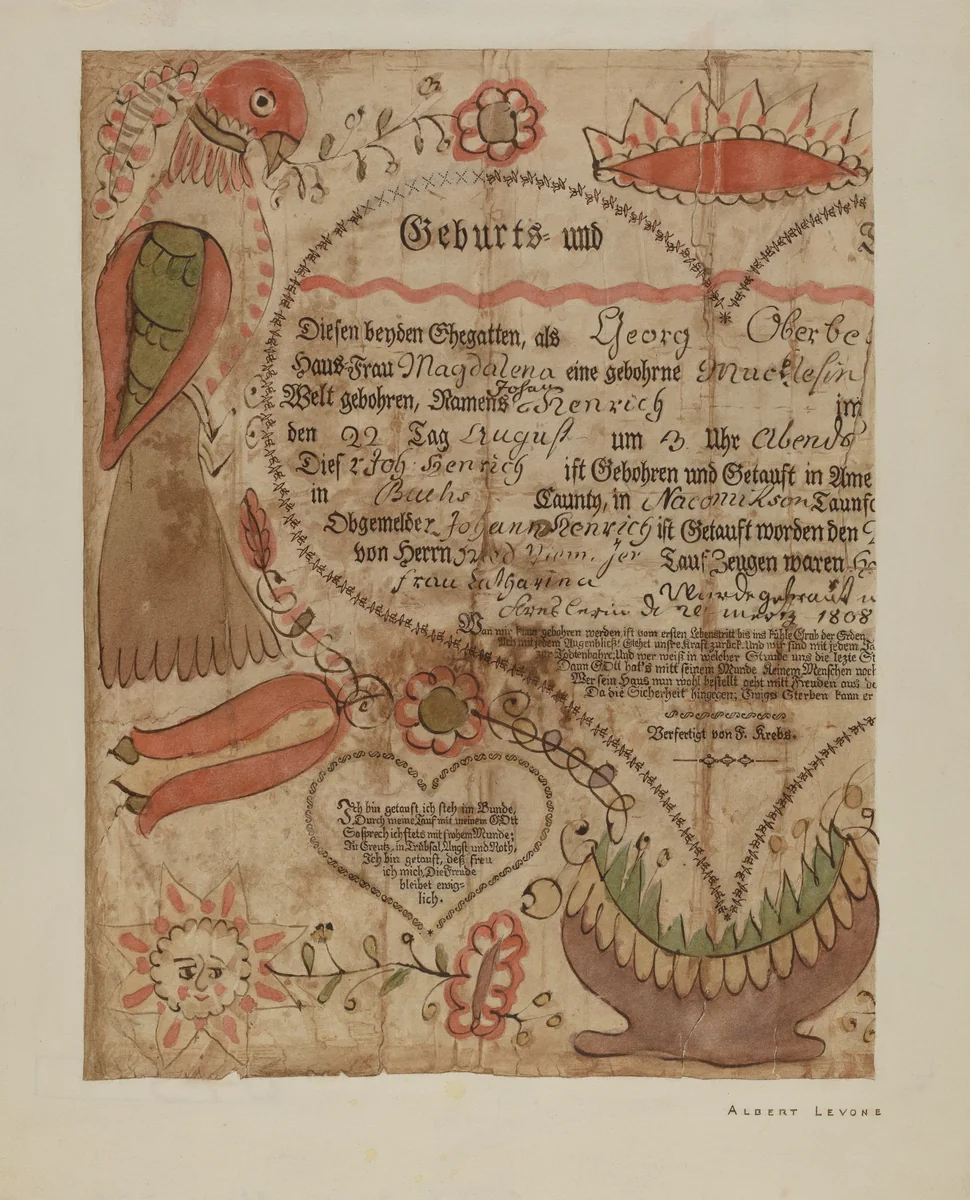 Geburts- und
Diesen beyden Ehegatten, als Georg Oberbe
Haus-Frau Magdalena eine gebohrne Mucklesin
Johan
Welt gebohren, Namens Henrich im
den 22 Tag August um 3 Uhr Abends
Dies r Joh: Henrich ist Gebohren und Getauft in Ame
in Buchs Caunty, in Nacomikson Taunsc
Obgemelder Johann Henrich ist Getauft worden den
von Herrn Taufzeugen waren
frau Catharina Wurde getrauft
1808
Wan wir kaum gebohren werden, ist vom ersten Lebenstritt bis ins kühle Grab der Erden
Ach mit jedem Augenblick! Gehet unsre Kraft zurück. Und wir sind mit jedem Ja
zur Todtenbahre; Und wer weiß in welcher Stunde uns die lezte St
Dann GOtt hat's mitt seinem Munde Keinem Menschen noch
Wer sein Haus nun wohl bestellt geht mitt Freuden aus de
Da die Sicherheit hingegen; Ewigs Sterben kann er
Verfertigt von F. Krebs.
Ich bin getauft, ich steh im Bunde,
Durch meine Tauf mit meinem GOtt
So sprech ich stets mit frohem Munde;
In Creutz, in Trübsal, Angst und Noth,
Ich bin getauft, deß freu
ich mich, Die Freude
bleibet ewig-
lich.
ALBERT LEVONE